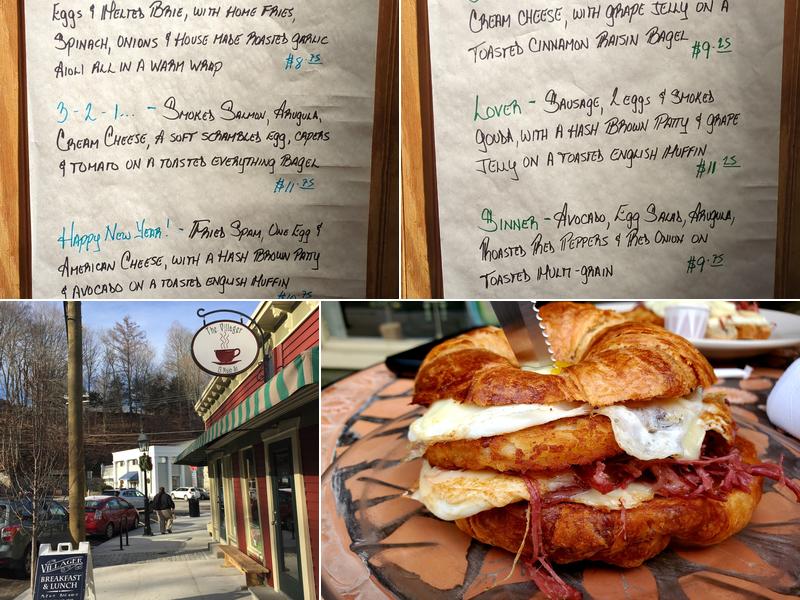 Eggs & Melted Brie, with Home Fries,
Spinach, Onions & House Made Roasted Garlic
Aioli all in a warm wrap $8.75
3-2-1... - Smoked Salmon, Arugula,
Cream Cheese, a soft scrambled egg, capers
& tomato on a toasted everything bagel
$11.75
Happy New Year! - Fried Spam, One Egg &
American Cheese, with a Hash Brown Patty
& Avocado on a toasted English Muffin
Cream Cheese, with Grape Jelly on a
Toasted Cinnamon Raisin Bagel $9.25
Lover - Sausage, 2 eggs & Smoked
Gouda, with a Hash Brown Patty & Grape
Jelly on a Toasted English Muffin
$11.25
Sinner - Avocado, Egg Salad, Arugula,
Roasted Red Peppers & Red Onion on
Toasted Multi-grain $9.75
The Villager
VILLAGER
BREAKFAST
& LUNCH